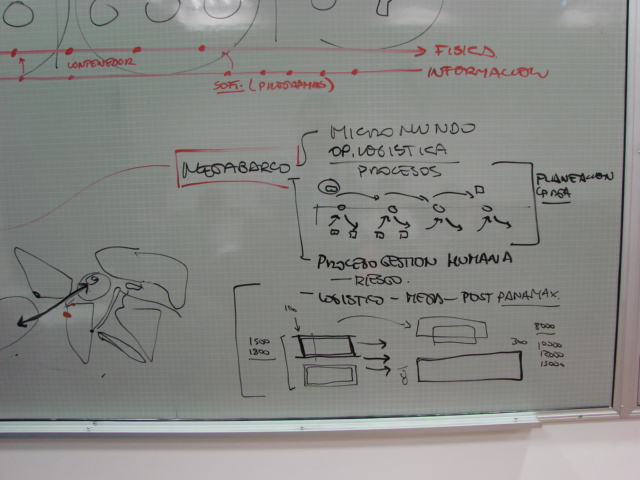 FISICA
CONTENEDOR
INFORMACION
SOFT. (PROGRAMAS)
MICROMUNDO
OP. LOGISTICA
MEGABARCO
PROCESOS
PLANEACION
CARGA
PROCESO GESTION HUMANA
— RIESGO.
— LOGISTICO — MEGA — POST PANAMAX.
1500
1800
300
8000
10000
12000